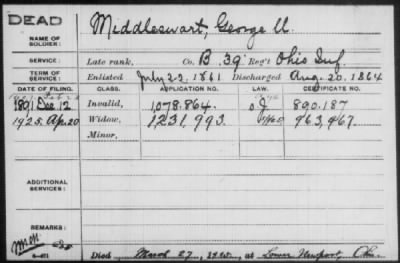 DEAD
NAME OF SOLDIER: Middleswart, George W.
SERVICE: Late rank, Co. B, 39 Reg't Ohio Inf.
TERM OF SERVICE: Enlisted July 22, 1861 Discharged Aug. 20, 1864
DATE OF FILING. CLASS. APPLICATION NO. LAW. CERTIFICATE NO.
1891 Dec 12 Invalid, 1,078,864. J 890.187
1925. Ap. 20 Widow, 1,231,993. 963,467.
Minor,
ADDITIONAL SERVICES:
REMARKS:
Died March 27, at Lower Newport, Ohio.